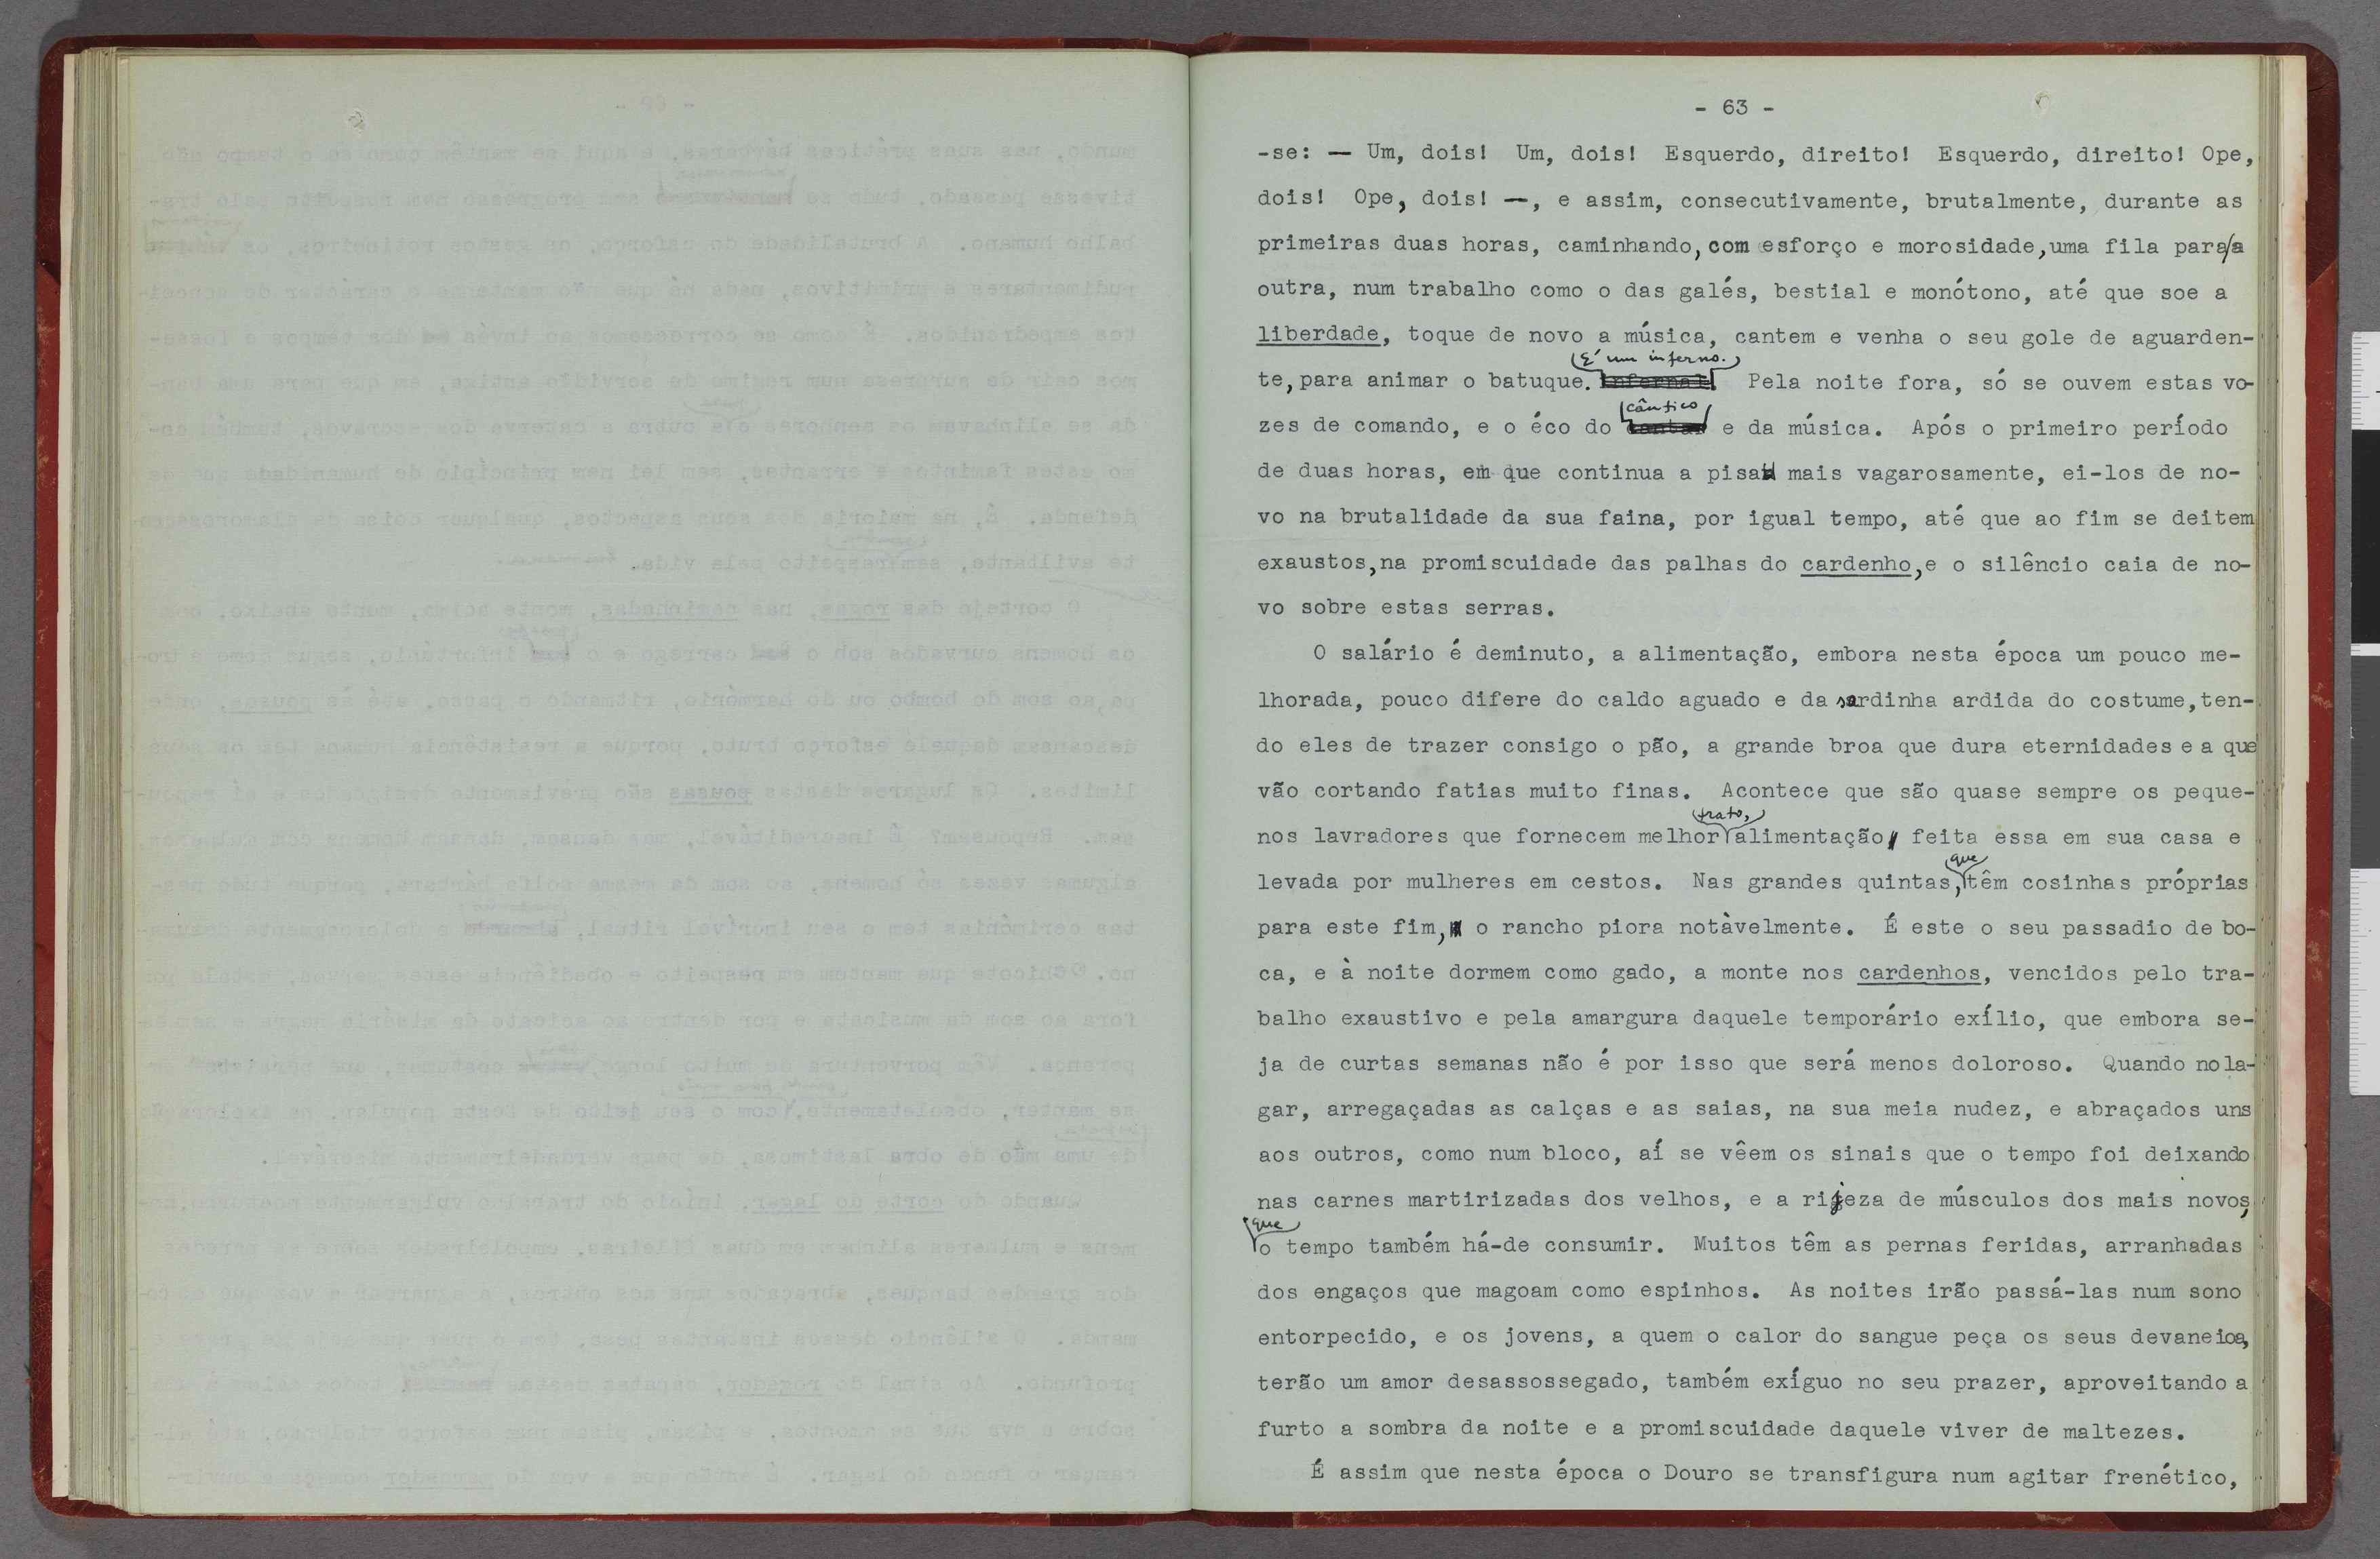 - 63 -
-se: — Um, dois! Um, dois! Esquerdo, direito! Esquerdo, direito! Ope,
dois! Ope, dois! —, e assim, consecutivamente, brutalmente, durante as
primeiras duas horas, caminhando, com esforço e morosidade, uma fila para a
outra, num trabalho como o das galés, bestial e monótono, até que soe a
liberdade, toque de novo a música, cantem e venha o seu gole de aguarden-
te, para animar o batuque. É um inferno. Pela noite fora, só se ouvem estas vo-
zes de comando, e o éco do cântico e da música. Após o primeiro período
de duas horas, em que continua a pisa mais vagarosamente, ei-los de no-
vo na brutalidade da sua faina, por igual tempo, até que ao fim se deitem
exaustos, na promiscuidade das palhas do cardenho, e o silêncio caia de no-
vo sobre estas serras.
O salário é deminuto, a alimentação, embora nesta época um pouco me-
lhorada, pouco difere do caldo aguado e da sardinha ardida do costume, ten-
do eles de trazer consigo o pão, a grande broa que dura eternidades e a que
vão cortando fatias muito finas. Acontece que são quase sempre os peque-
nos lavradores que fornecem melhor trato, alimentação feita essa em sua casa e
levada por mulheres em cestos. Nas grandes quintas, que têm cosinhas próprias
para este fim, o rancho piora notàvelmente. É este o seu passadio de bo-
ca, e à noite dormem como gado, a monte nos cardenhos, vencidos pelo tra-
balho exaustivo e pela amargura daquele temporário exílio, que embora se-
ja de curtas semanas não é por isso que será menos doloroso. Quando no la-
gar, arregaçadas as calças e as saias, na sua meia nudez, e abraçados uns
aos outros, como num bloco, aí se vêem os sinais que o tempo foi deixando
nas carnes martirizadas dos velhos, e a rijeza de músculos dos mais novos,
que o tempo também há-de consumir. Muitos têm as pernas feridas, arranhadas
dos engaços que magoam como espinhos. As noites irão passá-las num sono
entorpecido, e os jovens, a quem o calor do sangue peça os seus devaneios,
terão um amor desassossegado, também exíguo no seu prazer, aproveitando a
furto a sombra da noite e a promiscuidade daquele viver de maltezes.
É assim que nesta época o Douro se transfigura num agitar frenético,